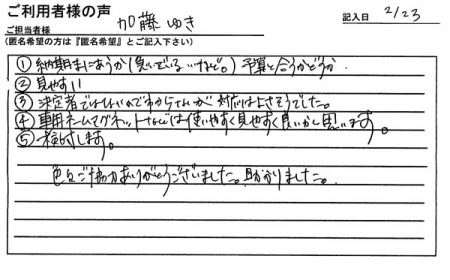 ご利用者様の声
ご担当者様 加藤ゆき
記入日 2/23
(匿名希望の方は『匿名希望』とご記入下さい)
① 納期にまにあうか(急いでいるけど。) 予算と合うかどうか.
② 見やすい
③ 決定者ではないのでわからないが 対応はよさそうでした。
④ 専用ホームでグネットなどでは使いやすく見やすく良いかと思います。
⑤ 検討します。
色々ご協力ありがとうございました。助かりました。